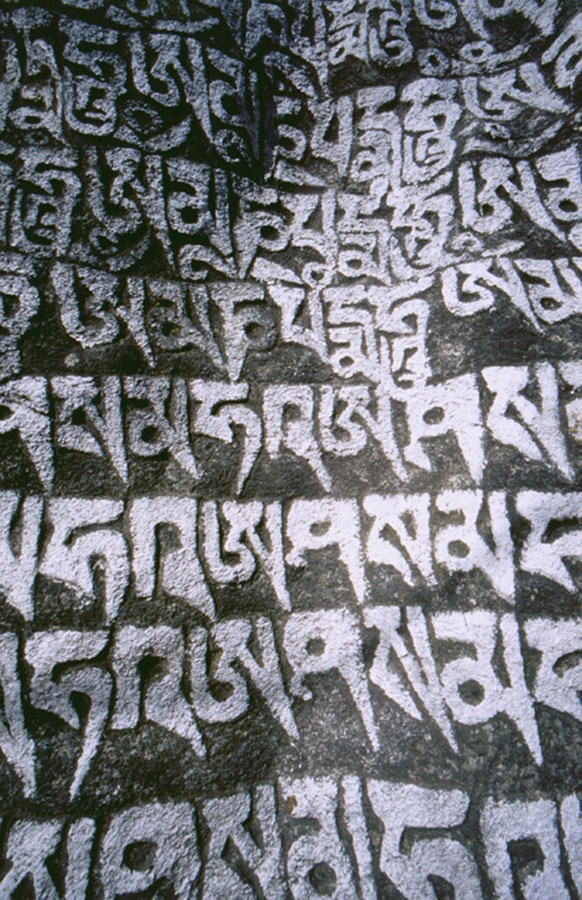 པདྨེ ཧཱུྃ ཨོཾ མ ཎི པདྨེ ཧཱུྃ ཨོཾ
ཧཱུྃ ཨོཾ མ ཎི པདྨེ ཧཱུྃ ཨོཾ མ
ཧཱུྃ ཨོཾ མ ཎི པདྨེ ཧཱུྃ ཨོཾ མ
ཤ ས མ ཧ འ ཨ ཤ ས
མ ཧ འ ཨ ཤ ས མ ཧ
མ ཧ འ ཨ ཤ ས མ ཧ
ཨ ཤ ས མ ཧ འ